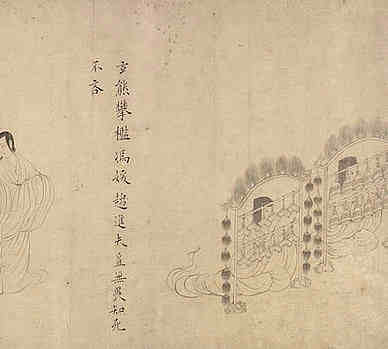 玄熊攀檻馮媛趍進夫豈無畏知死
不吝